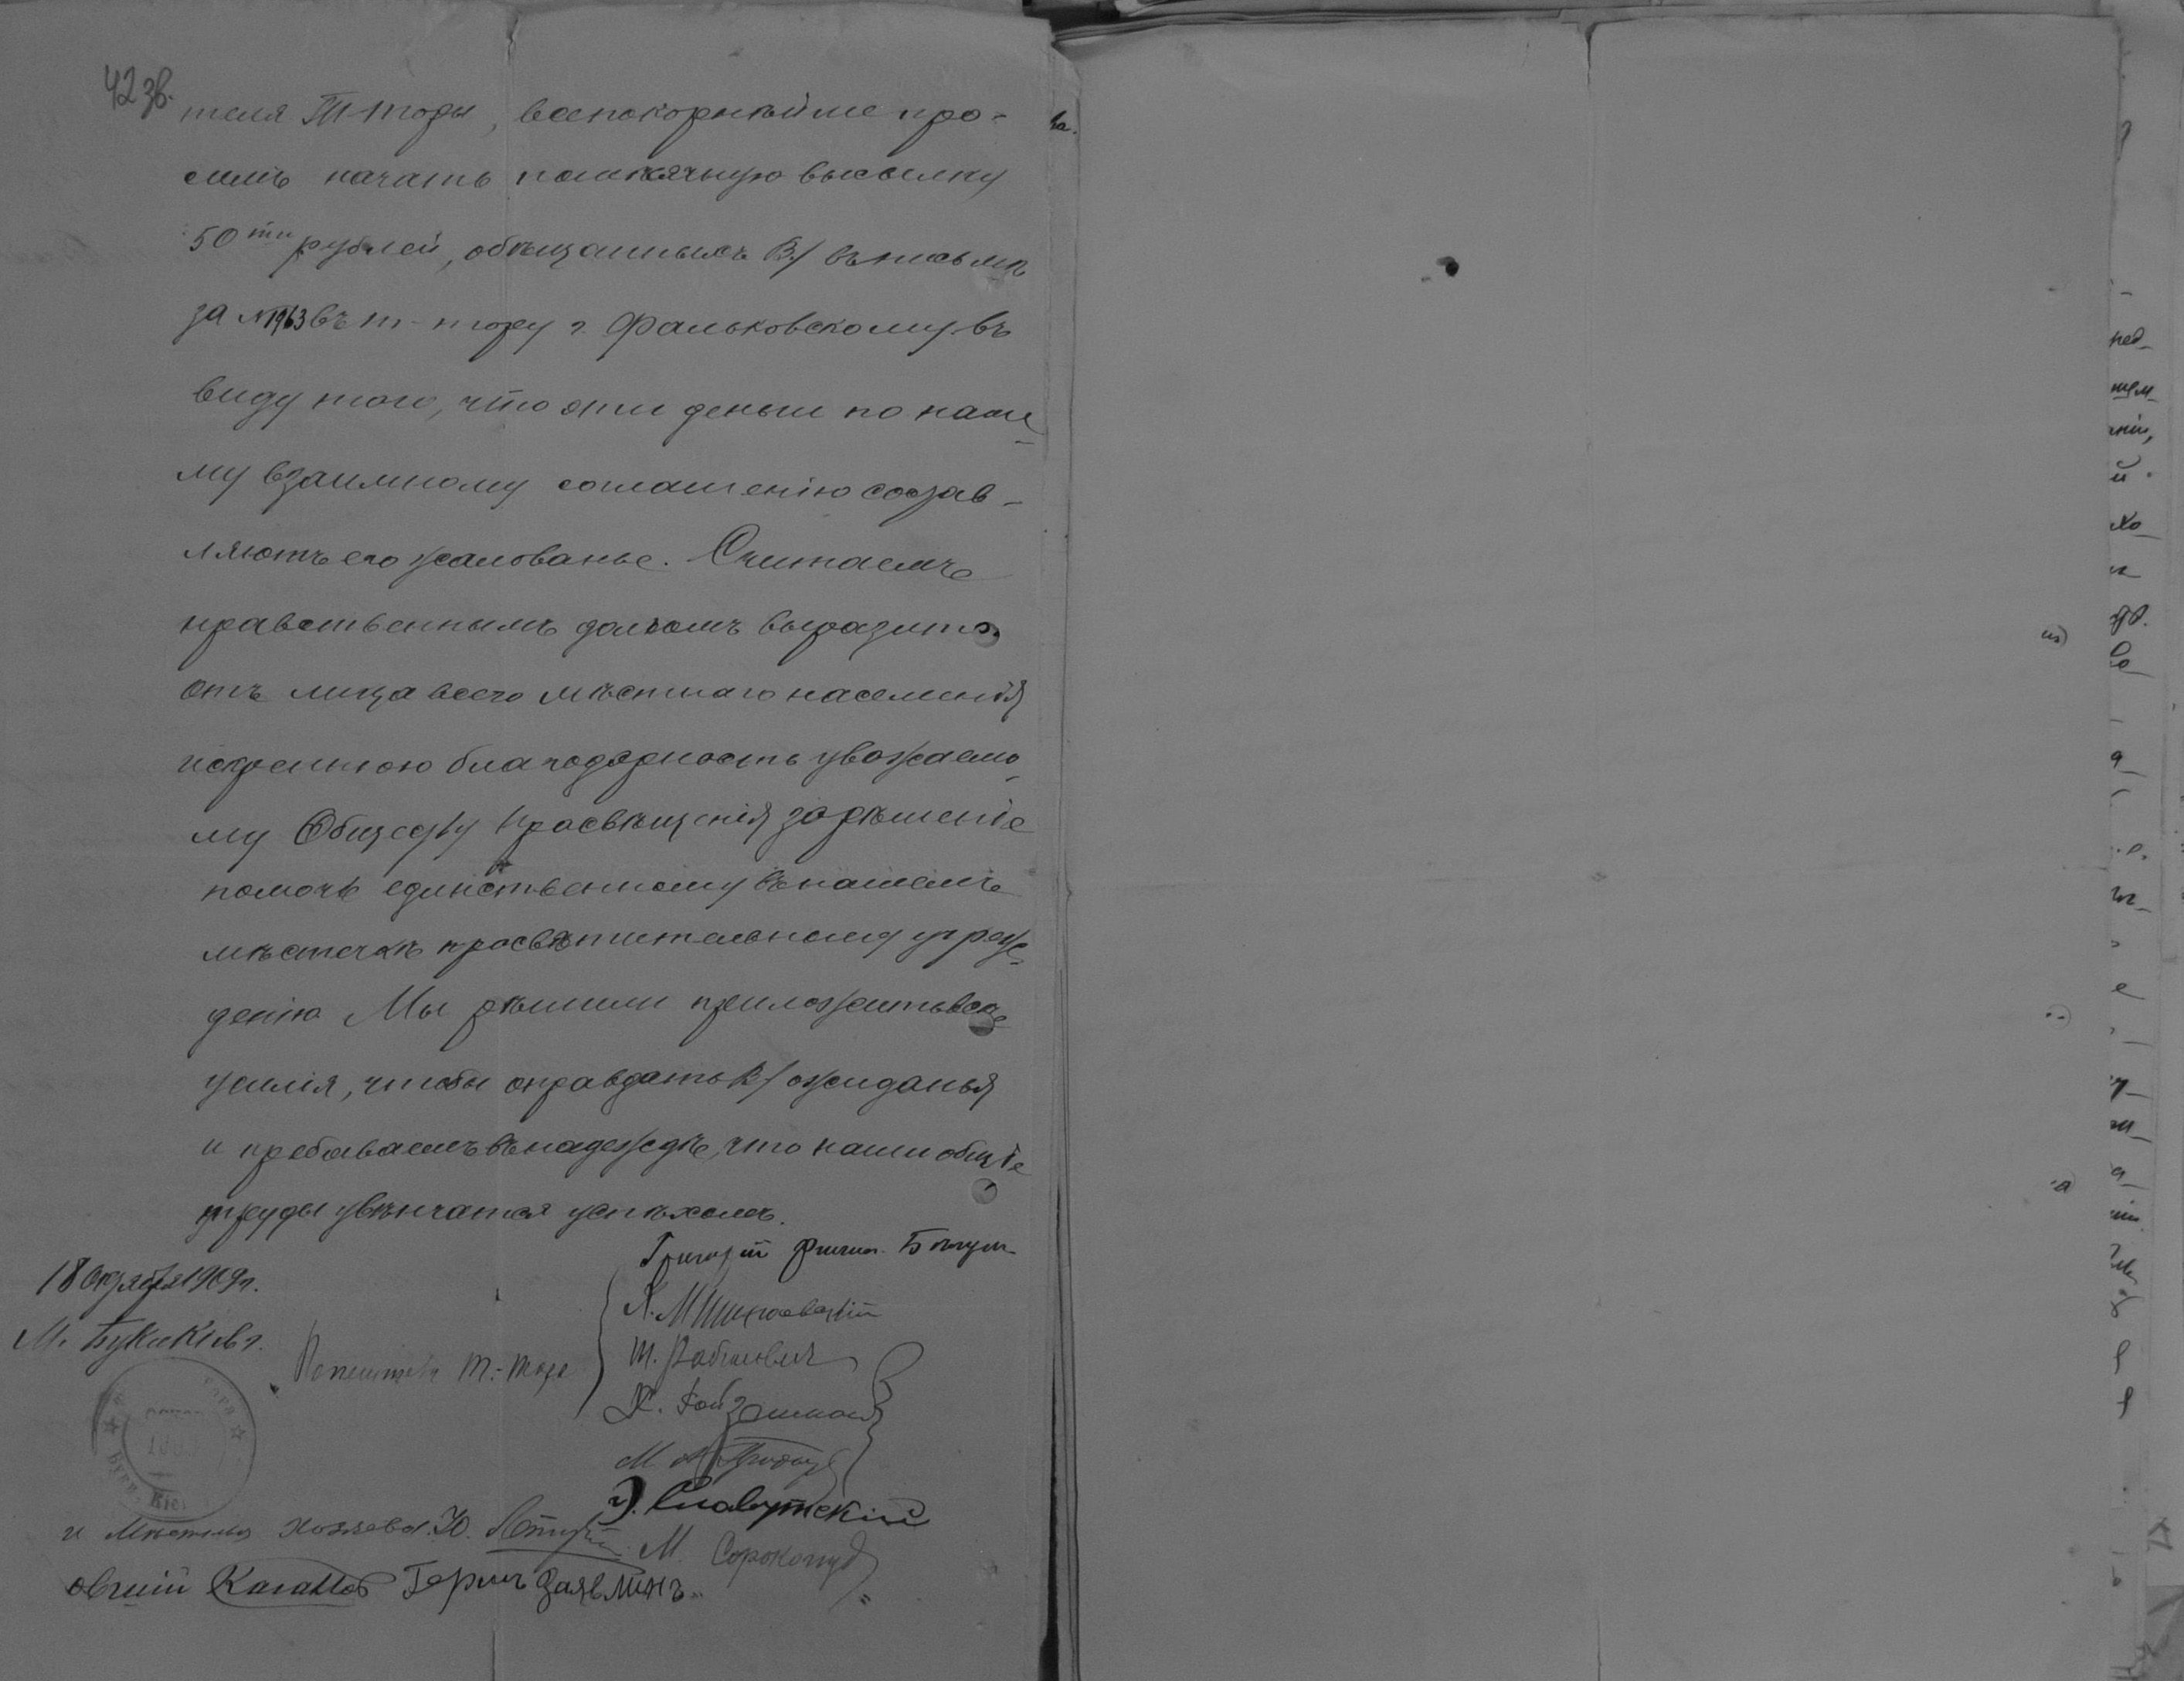 42 зв.
теля Т-Торы, всепокорнѣйше про-
симъ начать помѣсячную высылку
50ти рублей, обѣщанныхъ В/ въ письмѣ
за №1963 въ т-тору г. Фальковскому въ
виду того, что эти деньги по наше-
му взаимному соглашенію состав-
ляютъ его жалованье. Считаемъ
нравственнымъ долгомъ выразить
отъ лица всего мѣстнаго населенія
искреннюю благодарность уважаемо-
му Обществу Просвѣщенія за рѣшеніе
помочь единственному въ нашемъ
мѣстечкѣ просвѣтительному учреж-
денію Мы рѣшили приложить всѣ
усилія, чтобы оправдать В/ ожиданья
и пребываемъ въ надеждѣ, что наши общіе
труды увѣнчатся успѣхомъ.
18 Октября 1909 г.
М. Буки Кіев г.
Григорій
Попечители Т.-Торы
Ш. Рабинович
М.
Славутскій
и Мѣстныя хозяева. Ю.
М. Сорокопуд
Каган Герш Заявлинъ